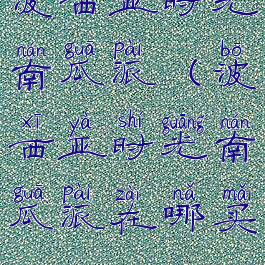 波西亚时光
nán guā pài bō
南瓜派(波
xī yà shí guāng nán
西亚时光南
guā pài zài nǎ mǎi
瓜派在哪买